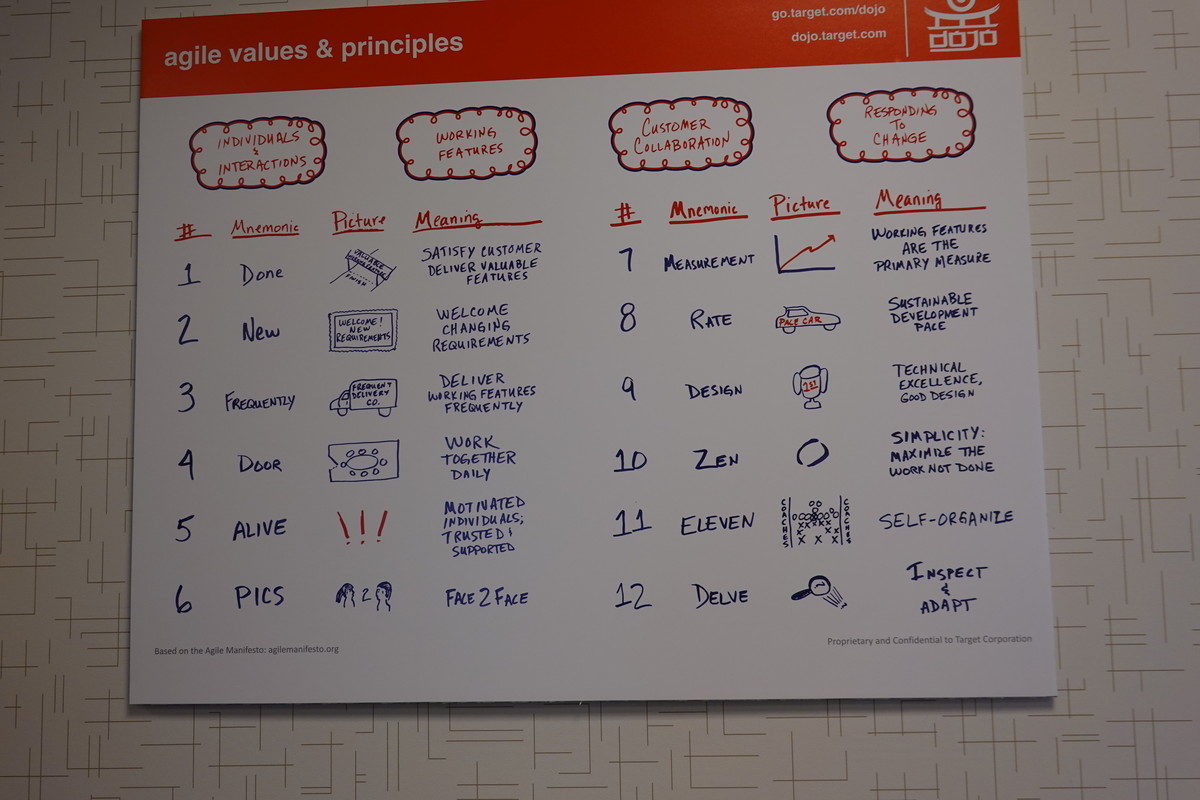 agile values & principles
go.target.com/dojo
dojo.target.com
DOJO
INDIVIDUALS
&
INTERACTIONS
WORKING
FEATURES
CUSTOMER
COLLABORATION
RESPONDING
TO
CHANGE
# Mnemonic Picture Meaning
1 Done
VALUABLE
FINISH
SATISFY CUSTOMER
DELIVER VALUABLE
FEATURES
2 New
WELCOME!
NEW
REQUIREMENTS
WELCOME
CHANGING
REQUIREMENTS
3 FREQUENTLY
FREQUENT
DELIVERY
CO.
DELIVER
WORKING FEATURES
FREQUENTLY
4 DOOR
WORK
TOGETHER
DAILY
5 ALIVE
!!!
MOTIVATED
INDIVIDUALS;
TRUSTED &
SUPPORTED
6 PICS
2
FACE 2 FACE
# Mnemonic Picture Meaning
7 MEASUREMENT
WORKING FEATURES
ARE THE
PRIMARY MEASURE
8 RATE
PACE CAR
SUSTAINABLE
DEVELOPMENT
PACE
9 DESIGN
1ST
TECHNICAL
EXCELLENCE,
GOOD DESIGN
10 ZEN
SIMPLICITY:
MAXIMIZE THE
WORK NOT DONE
11 ELEVEN
COACHES
COACHES
SELF-ORGANIZE
12 DELVE
INSPECT
&
ADAPT
Based on the Agile Manifesto: agilemanifesto.org
Proprietary and Confidential to Target Corporation